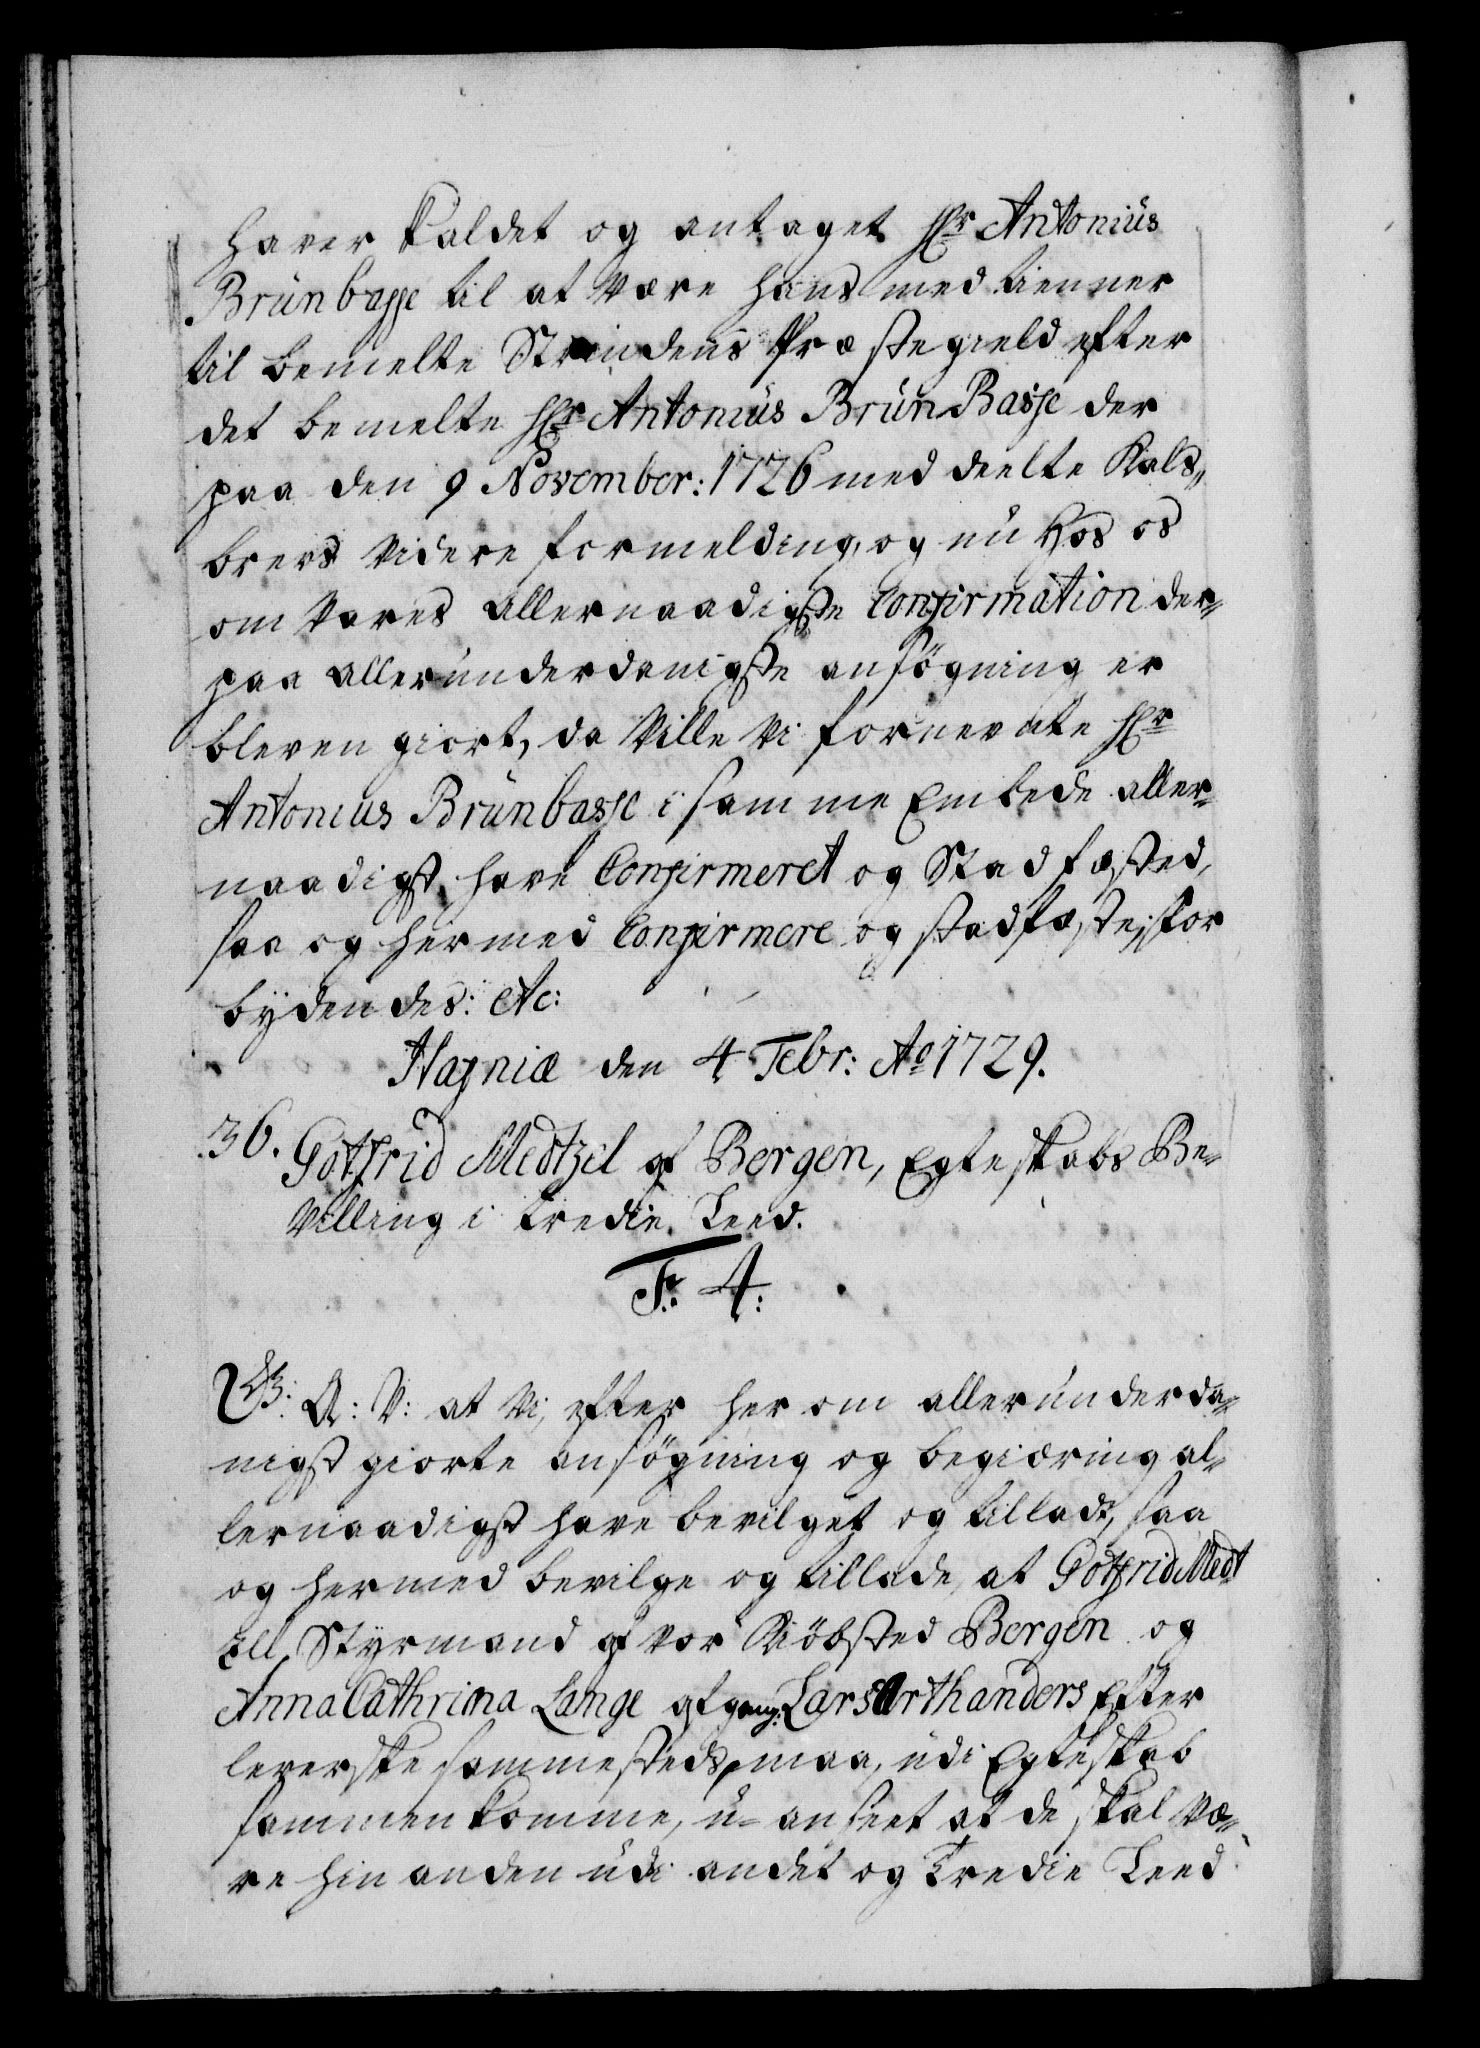 haver kaldet og antaget Hr Antonius
Brünbasse til at være hans medtienner
til bemelte Strindens Præstegield efter
det bemelte Hr Antonius Brün Basse der
paa den 9 November: 1726 meddeelte Kals„
brevs videre formelding, og nu hos os
om vores allernaadigste Confirmation der„
paa allerunderdanigste ansøgning er
bleven giort, da ville vi fornevnte Hr
Antonius Brünbasse i samme Embede aller„
naadigst have Confirmeret og Stadfæsted,
saa og hermed Confirmere og stadfæste, for
bÿdendes: etc:
Hafniæ den 4 Febr: Ao 1729.
36. Gotfrid Medtzel af Bergen, Egteskabs Be„
villing i tredie Leed.
F: 4:
G: A: V: at vi, efter her om allerunderda„
nigst giorte ansøgning og begiæring al„
lernaadigst have bevilget og tilladt, saa
og hermed bevilge og tillade, at Gotfrid Medt
zell Styrmand af vor Kiøbsted Bergen og
Anna Cathrina Lange afgang: Lars Orthanders Efter
leverske sammesteds, maa, udi Egteskab
sammenkomme, u-anseet at de skal væ„
re hinanden udi andet og Tredie Leed